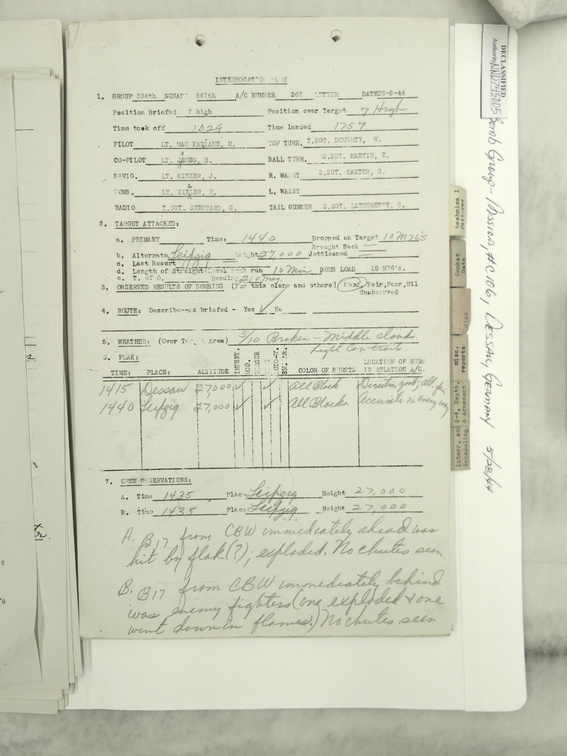 INTERROGATION FORM
1. GROUP 384th SQUAD 547th A/C NUMBER 367 LETTER DATE 28-5-44
Position Briefed 7 high Position over Target 7 High
Time took off 1029 Time landed 1757
PILOT LT. MAC FARLANE, M. TOP TURR. T.SGT. DOUGHTY, W.
CO-PILOT LT. B. BALL TURR. S.SGT. MARTIN, E.
NAVIG. LT. J. R. WAIST S.SGT. CASTER, G.
BOMB. LT. F. L. WAIST
RADIO T.SGT. SHEPPARD, O. TAIL GUNNER S.SGT. LATOURETTE, C.
2. TARGET ATTACKED:
a. PRIMARY Time: 1440 Dropped on Target 10 M76's
Brought Back
b. Alternate Leipzig Height 27,000 Jettisoned
c. Last Resort
d. Length of Straight/Level Bomb run 10 Min BOMB LOAD 10 M76's.
e. T. O. O. Heading 210 Mag
3. OBSERVED RESULTS OF BOMBING (For this plane and others) Good, Fair, Poor, Nil
Unobserved
4. ROUTE: Describe--as briefed - Yes ✓ No
5. WEATHER: (Over Target Area) 3/10 Broken - Middle clouds
Light Contrails
6. FLAK:
TIME: PLACE: ALTITUDE INTENT. MOD. COLOR OF BURSTS LOCATION OF BURSTS
IN RELATION A/C.
1415 Dessau 27,000 ✓ ✓ All Black
1440 Leipzig 27,000 ✓ ✓ All Black Accurate in every way
7. CREW OBSERVATIONS:
A. Time 1435 Place Leipzig Height 27,000
B. Time 1435 Place Leipzig Height 27,000
A. B17 from CBW immediately ahead was
hit by flak (?), exploded. No chutes seen.
B. B17 from CBW immediately behind
was enemy fighters (one exploded & one
went down in flames.) No chutes seen
DECLASSIFIED
Authority NND 745005
Bomb Group - Mission, # C106, Dessau, Germany 5/28/44
technical
Combat
Data
misc.
reports
Interr. and S-4, Weath.
Scheduling & Armament